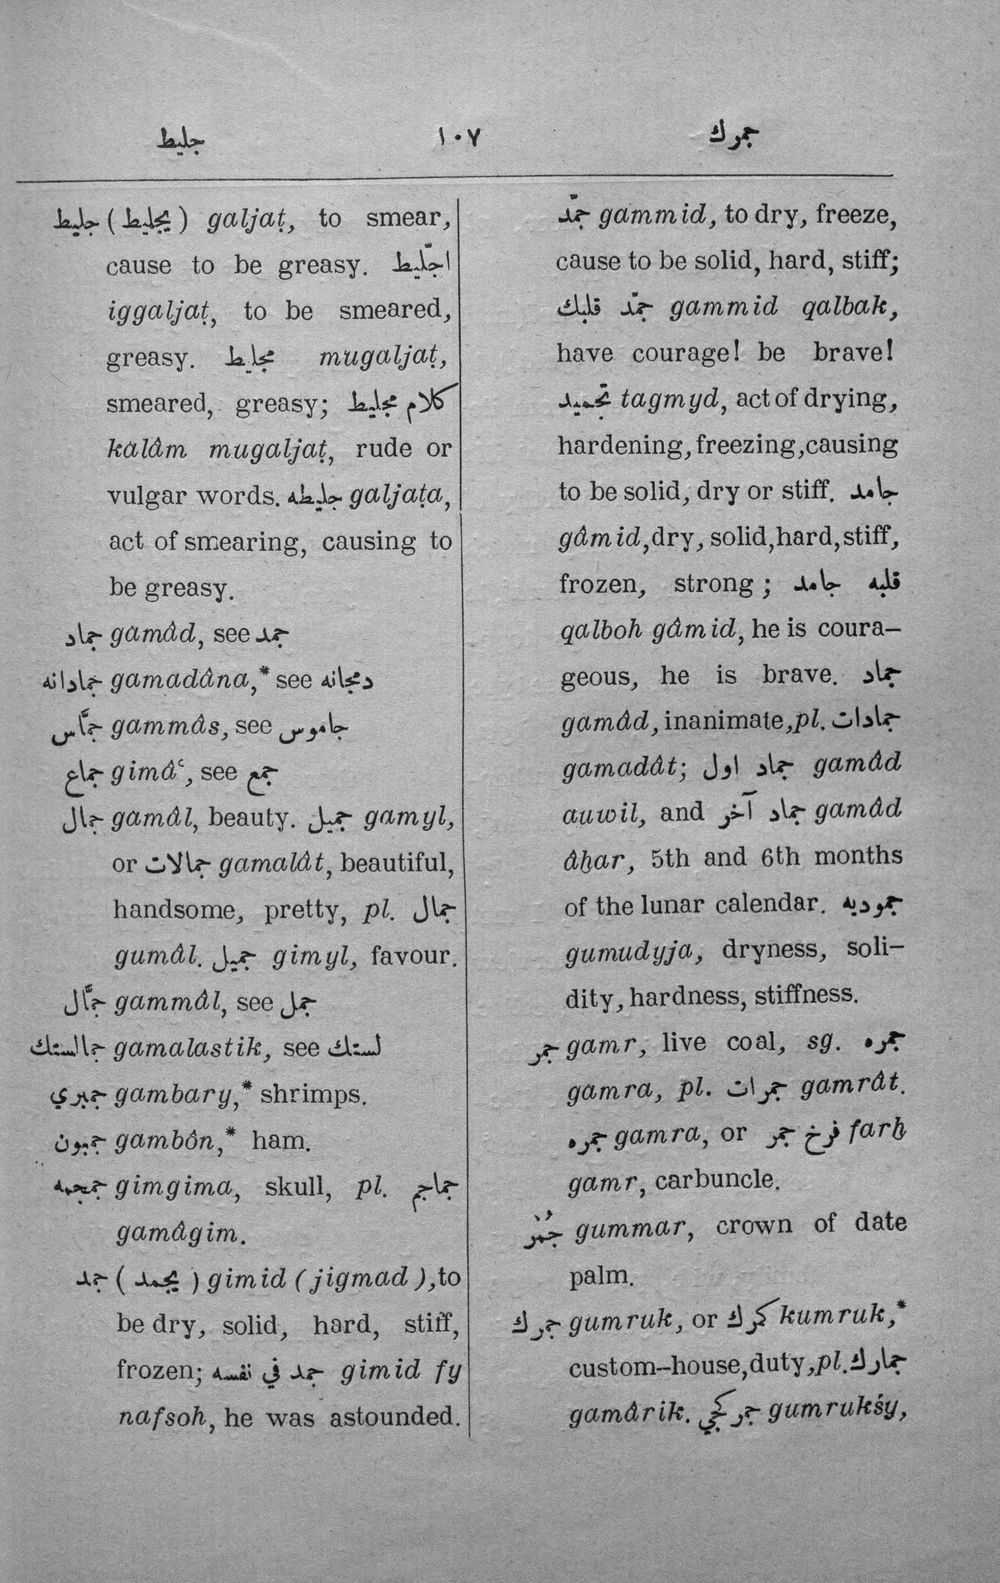 جليط ١٠٧ جمرك
جليط (يجليط) galjaṭ, to smear,
cause to be greasy. اجّليط
iggaljaṭ, to be smeared,
greasy. مجليط mugaljaṭ,
smeared, greasy; كلام مجليط
kalâm mugaljaṭ, rude or
vulgar words. جليطه galjaṭa,
act of smearing, causing to
be greasy.
جماد gamâd, see جمد
جمادانه gamadâna,* see دمجانه
جمّاس gammâs, see جاموس
جماع gimâ‘, see جمع
جمال gamâl, beauty. جميل gamyl,
or جمالات gamalât, beautiful,
handsome, pretty, pl. جمال
gumâl. جميل gimyl, favour.
جمّال gammâl, see جمل
جمالستك gamalastik, see لستك
جمبري gambary,* shrimps.
جمبون gambôn,* ham.
جمجمه gimgima, skull, pl. جماجم
gamâgim.
جمد (يجمد) gimid (jigmad),to
be dry, solid, hard, stiff,
frozen; جمد في نفسه gimid fy
nafsoh, he was astounded.
جمّد gammid, to dry, freeze,
cause to be solid, hard, stiff;
جمّد قلبك gammid qalbak,
have courage! be brave!
تجميد tagmyd, act of drying,
hardening, freezing, causing
to be solid, dry or stiff. جامد
gâmid, dry, solid, hard, stiff,
frozen, strong; قلبه جامد
qalboh gâmid, he is coura-
geous, he is brave. جماد
gamâd, inanimate, pl. جمادات
gamadât; جماد اول gamâd
auwil, and جماد آخر gamâd
âḫar, 5th and 6th months
of the lunar calendar. جموديه
gumudyja, dryness, soli-
dity, hardness, stiffness.
جمر gamr, live coal, sg. جمره
gamra, pl. جمرات gamrât.
جمره gamra, or فرخ جمر farḫ
gamr, carbuncle.
جُمّر gummar, crown of date
palm.
جمرك gumruk, or كمرك kumruk,*
custom-house, duty, pl. جمارك
gamârik. جمركجي gumrukśy,